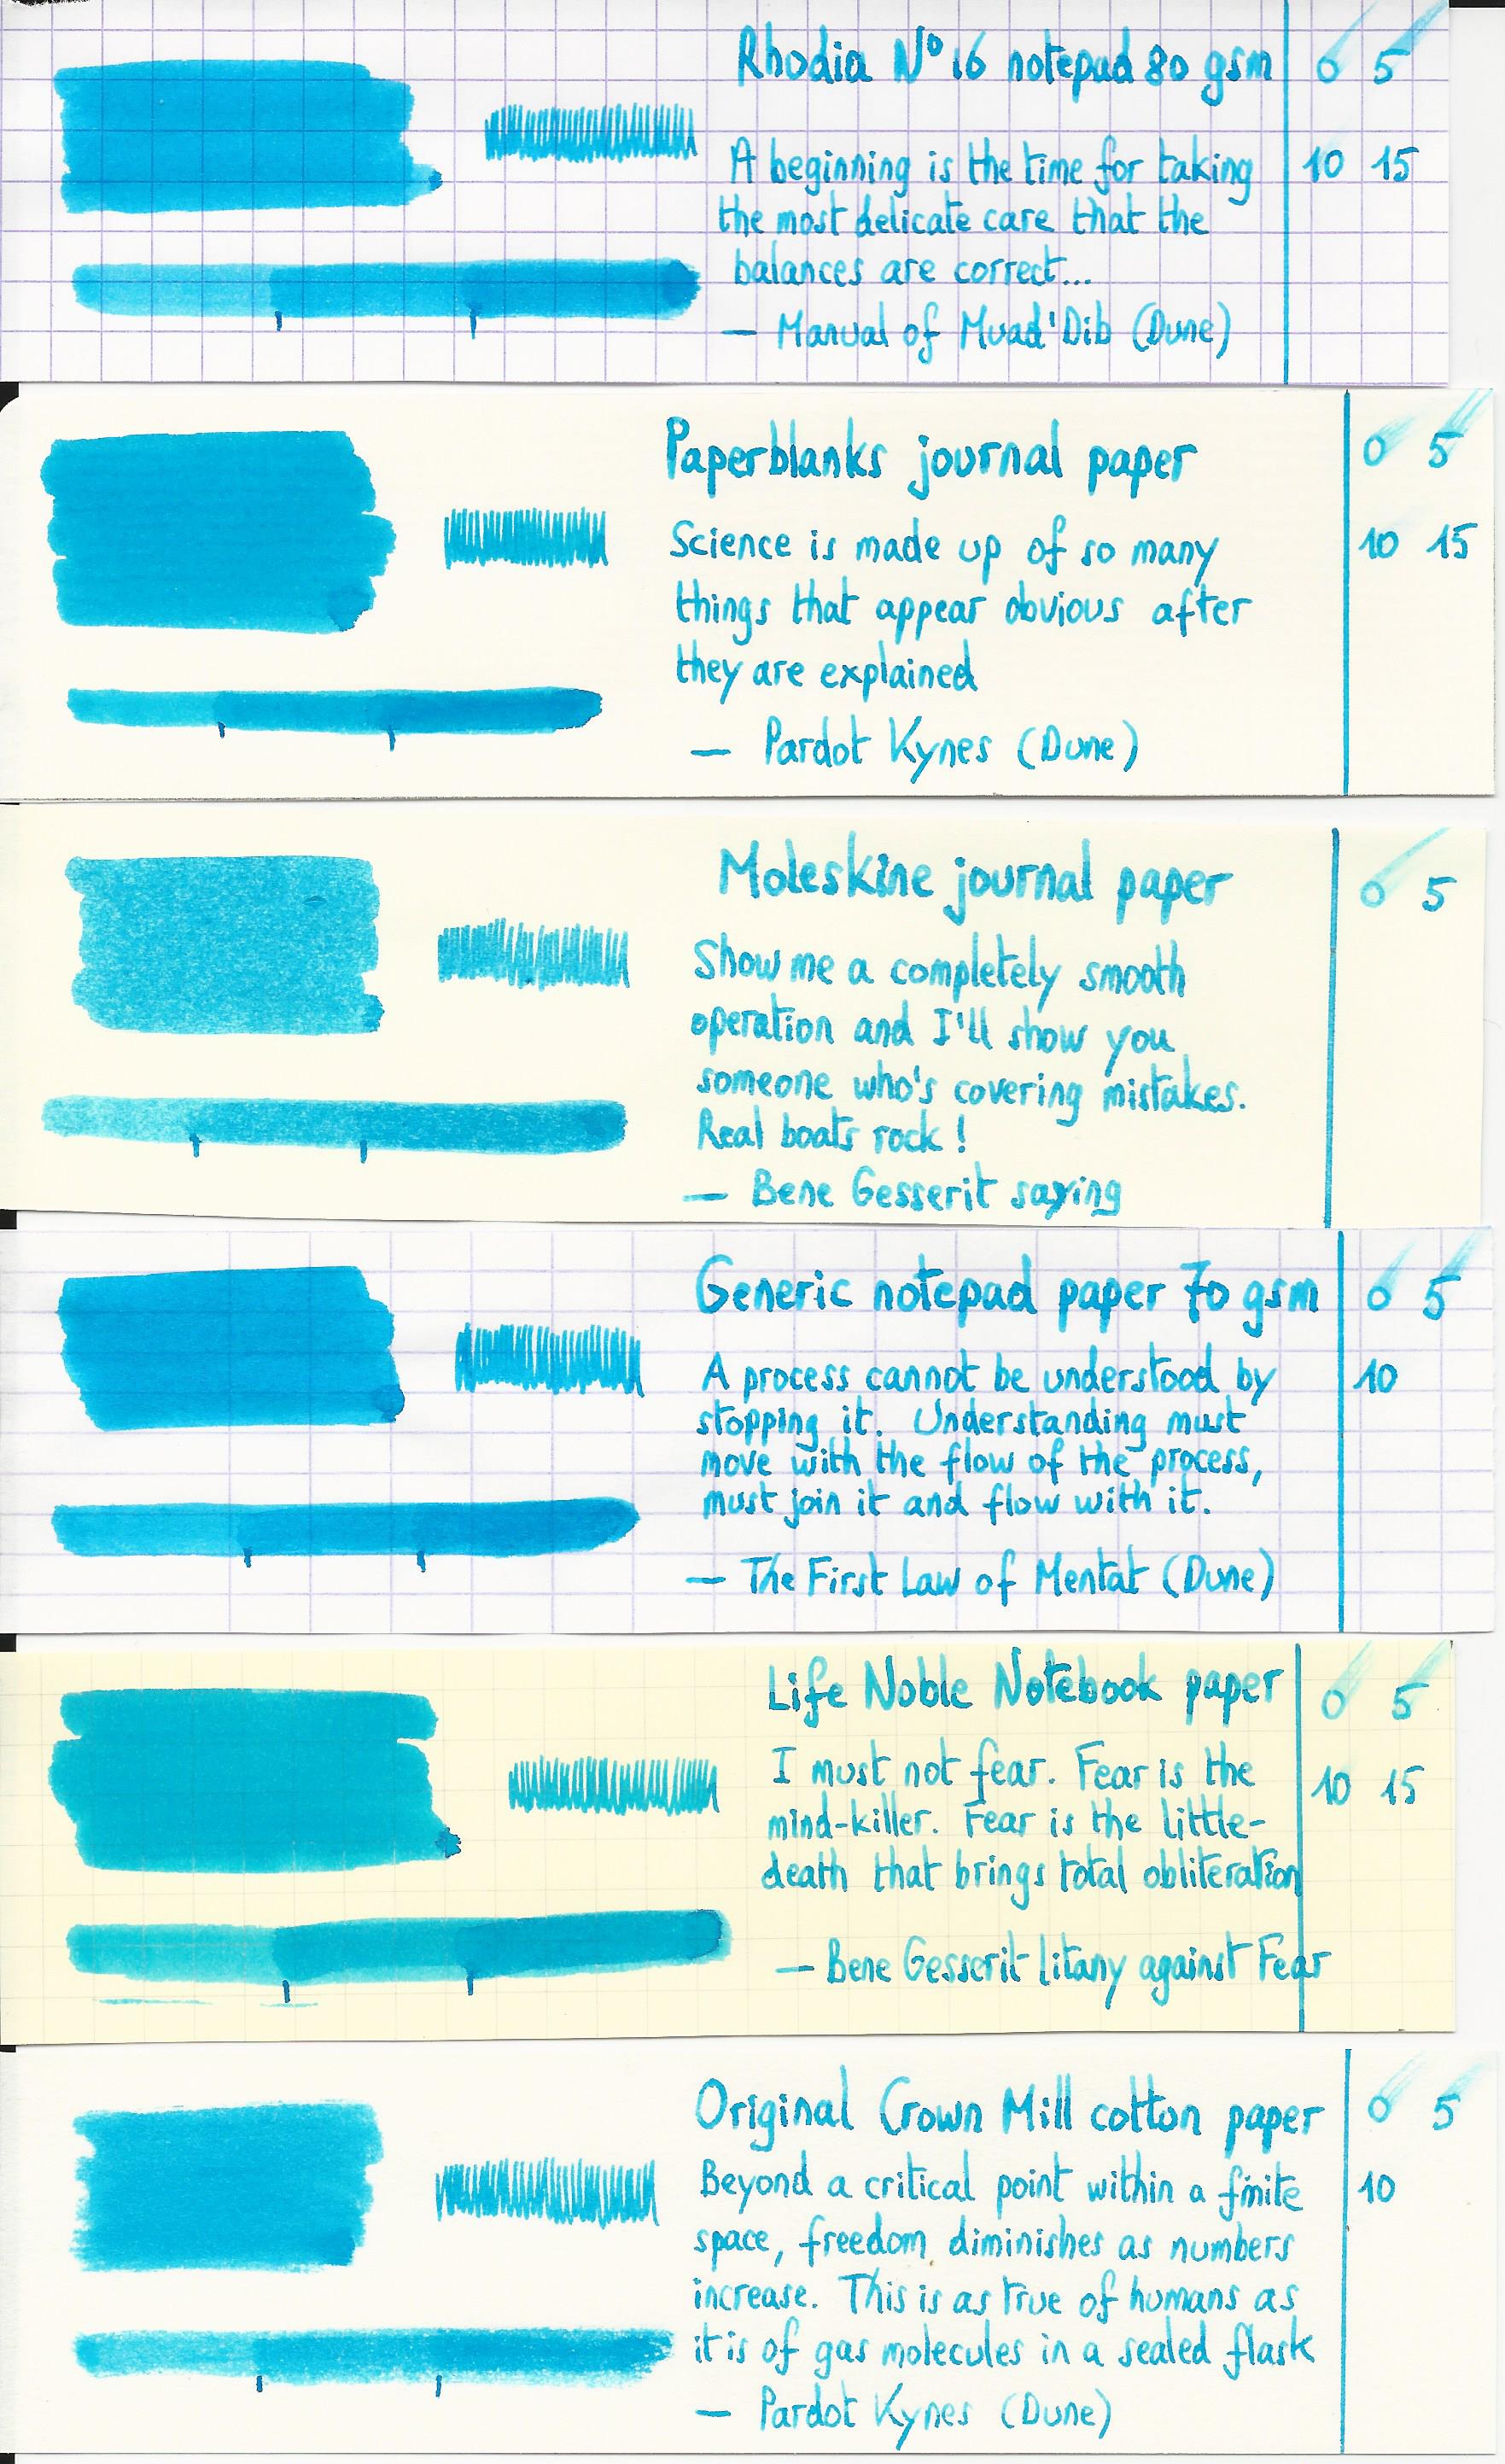 Rhodia N° 16 notepad 80 gsm
0 5
A beginning is the time for taking
10 15
the most delicate care that the
balances are correct...
— Manual of Muad'Dib (Dune)
Paperblanks journal paper
0 5
Science is made up of so many
10 15
things that appear obvious after
they are explained
— Pardot Kynes (Dune)
Moleskine journal paper
0 5
Show me a completely smooth
operation and I'll show you
someone who's covering mistakes.
Real boats rock!
— Bene Gesserit saying
Generic notepad paper 70 gsm
0 5
A process cannot be understood by
10
stopping it. Understanding must
move with the flow of the process,
must join it and flow with it.
— The First Law of Mentat (Dune)
Life Noble Notebook paper
0 5
I must not fear. Fear is the
10 15
mind-killer. Fear is the little-
death that brings total obliteration
— Bene Gesserit litany against Fear
Original Crown Mill cotton paper
0 5
Beyond a critical point within a finite
10
space, freedom diminishes as numbers
increase. This is as true of humans as
it is of gas molecules in a sealed flask
— Pardot Kynes (Dune)